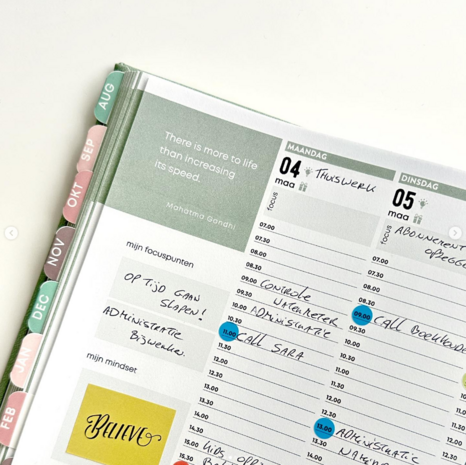 AUG
SEP
OKT
NOV
DEC
JAN
FEB
There is more to life
than increasing
its speed.
Mahatma Gandhi
mijn focuspunten
OP TIJD GAAN
SLAPEN!
ADMINISTRATIE
BIJWERKEN.
mijn mindset
BELIEVE
MAANDAG
04 THUISWERK
maa
focus
07.00
07.30
08.00
08.30
09.00 CONTROLE
09.30 URENMETER
10.00 ADMINISTRATIE
10.30
11.00 CALL SARA
11.30
12.00
12.30
13.00
13.30
14.00
14.30
15.00 KIDS
15.30
DINSDAG
05
maa
focus
ABONNEMENT
07.00
07.30
08.00
08.30
09.00 CALL
09.30
10.00
10.30
11.00
11.30
12.00
12.30
13.00 ADMINISTRATIE
13.30